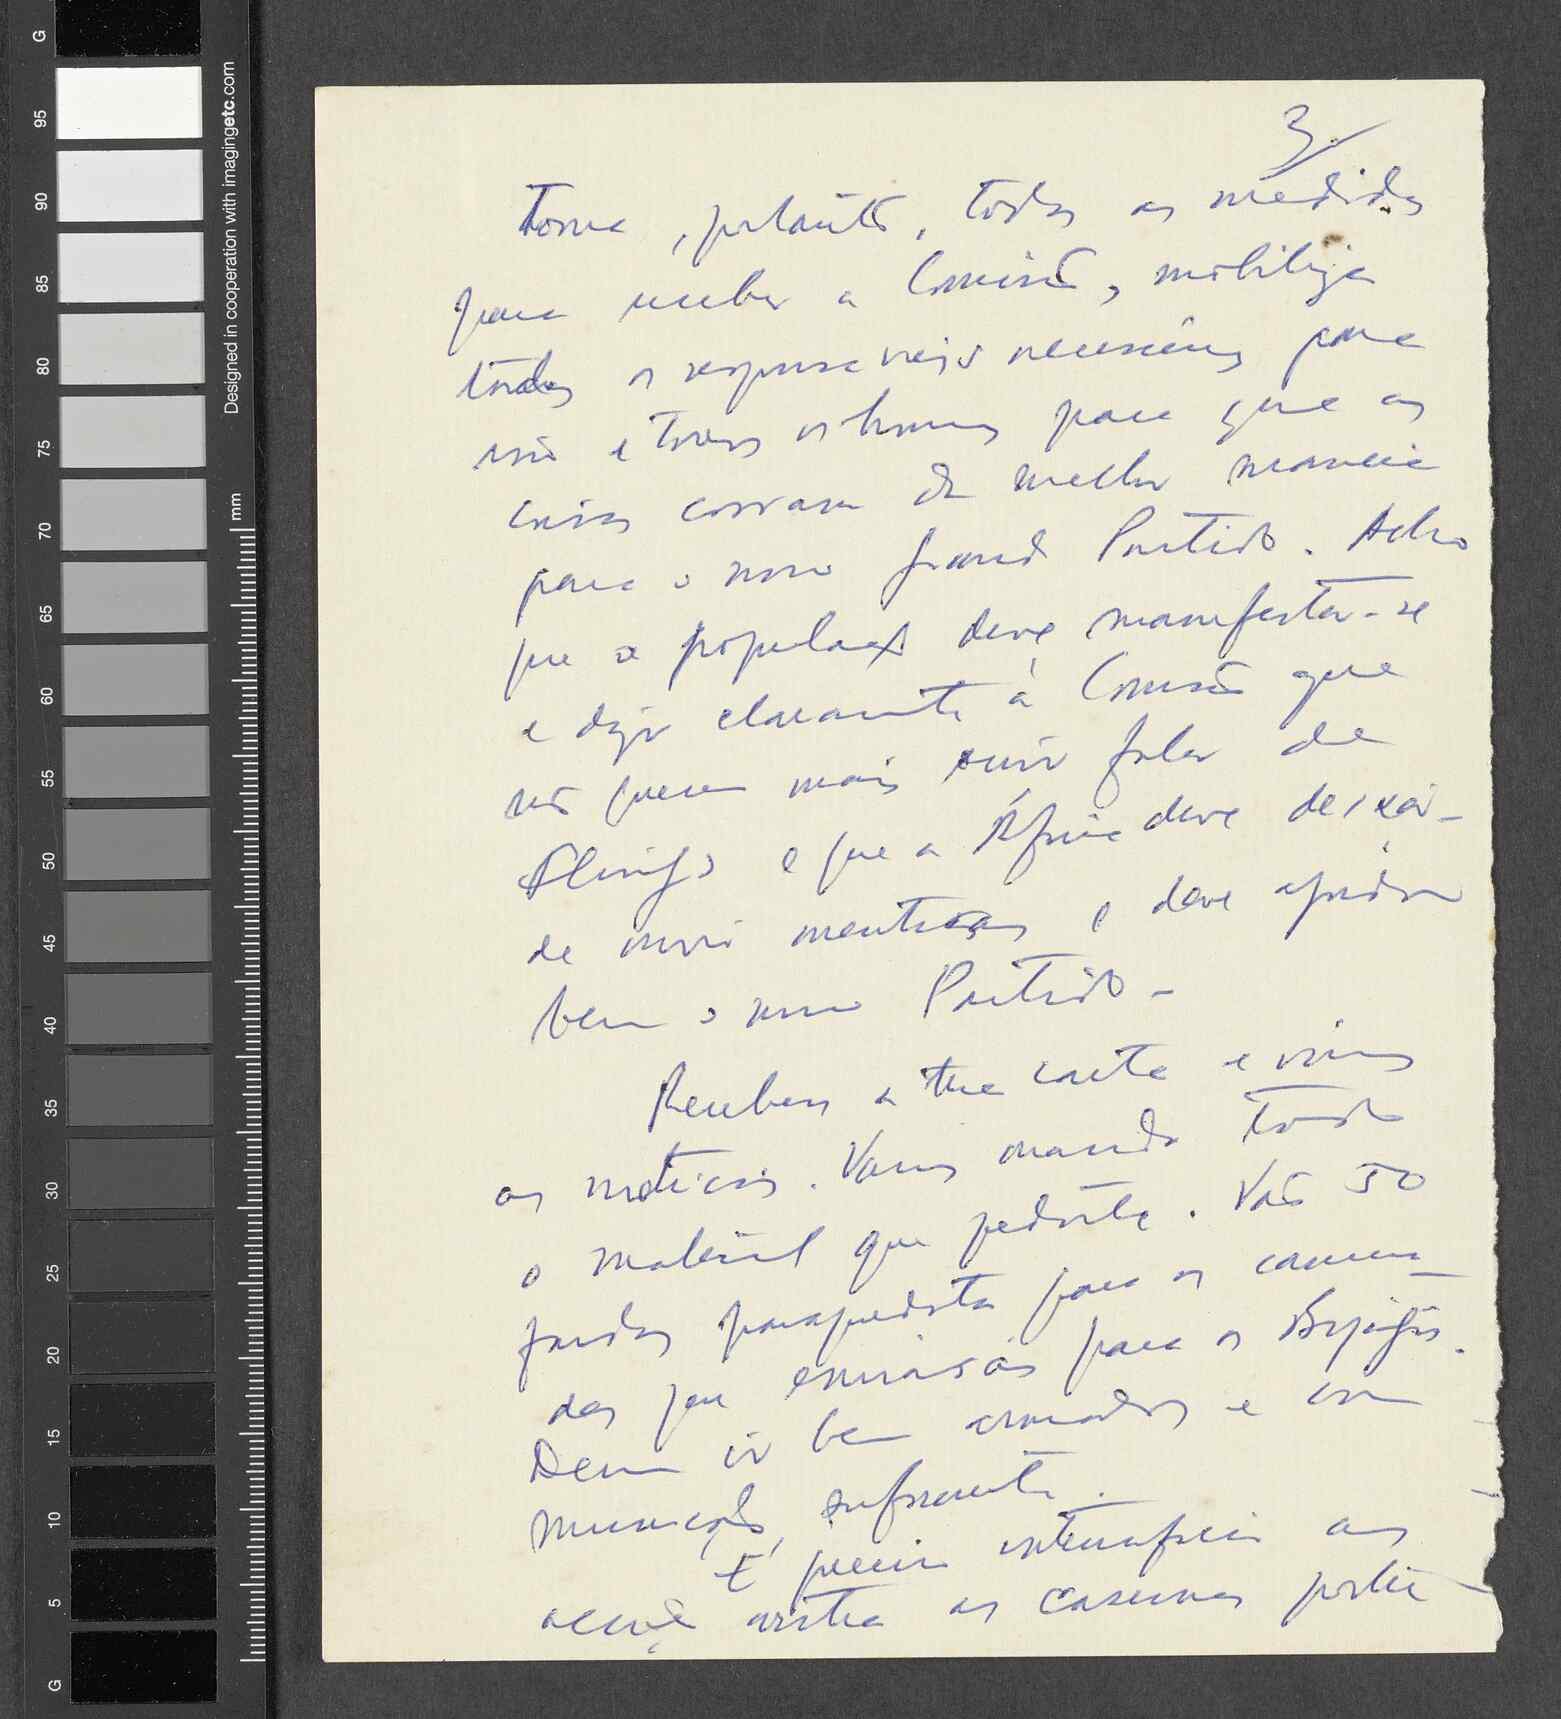 3/
Toma, portanto, todas as medidas
para receber a Comissão, mobiliza
todos os responsaveis necessários para
isso e todos os homens para que as
coisas corram da melhor maneira
para o nosso grande Partido. Acho
que a população deve manifestar-se
e dizer claramente à Comissão que
não querem mais ouvir falar de
e que a África deve deixar-
de ouvir mentiras e deve ajudar
bem o nosso Partido-
Recebemos a tua carta e vimos
as notícias. Vamos mandar todo
o material que pediste. Vão 50
fardas paraquedista para os camara-
das que enviarás para os Bijagós.
Devem ir bem armados e com
munições suficiente.
É preciso intensificar as
acções contra as casernas portu-
G
95
90
85
80
75
70
65
60
55
50
45
40
35
30
25
20
15
10
5
G
mm
Designed in cooperation with imagingetc.com